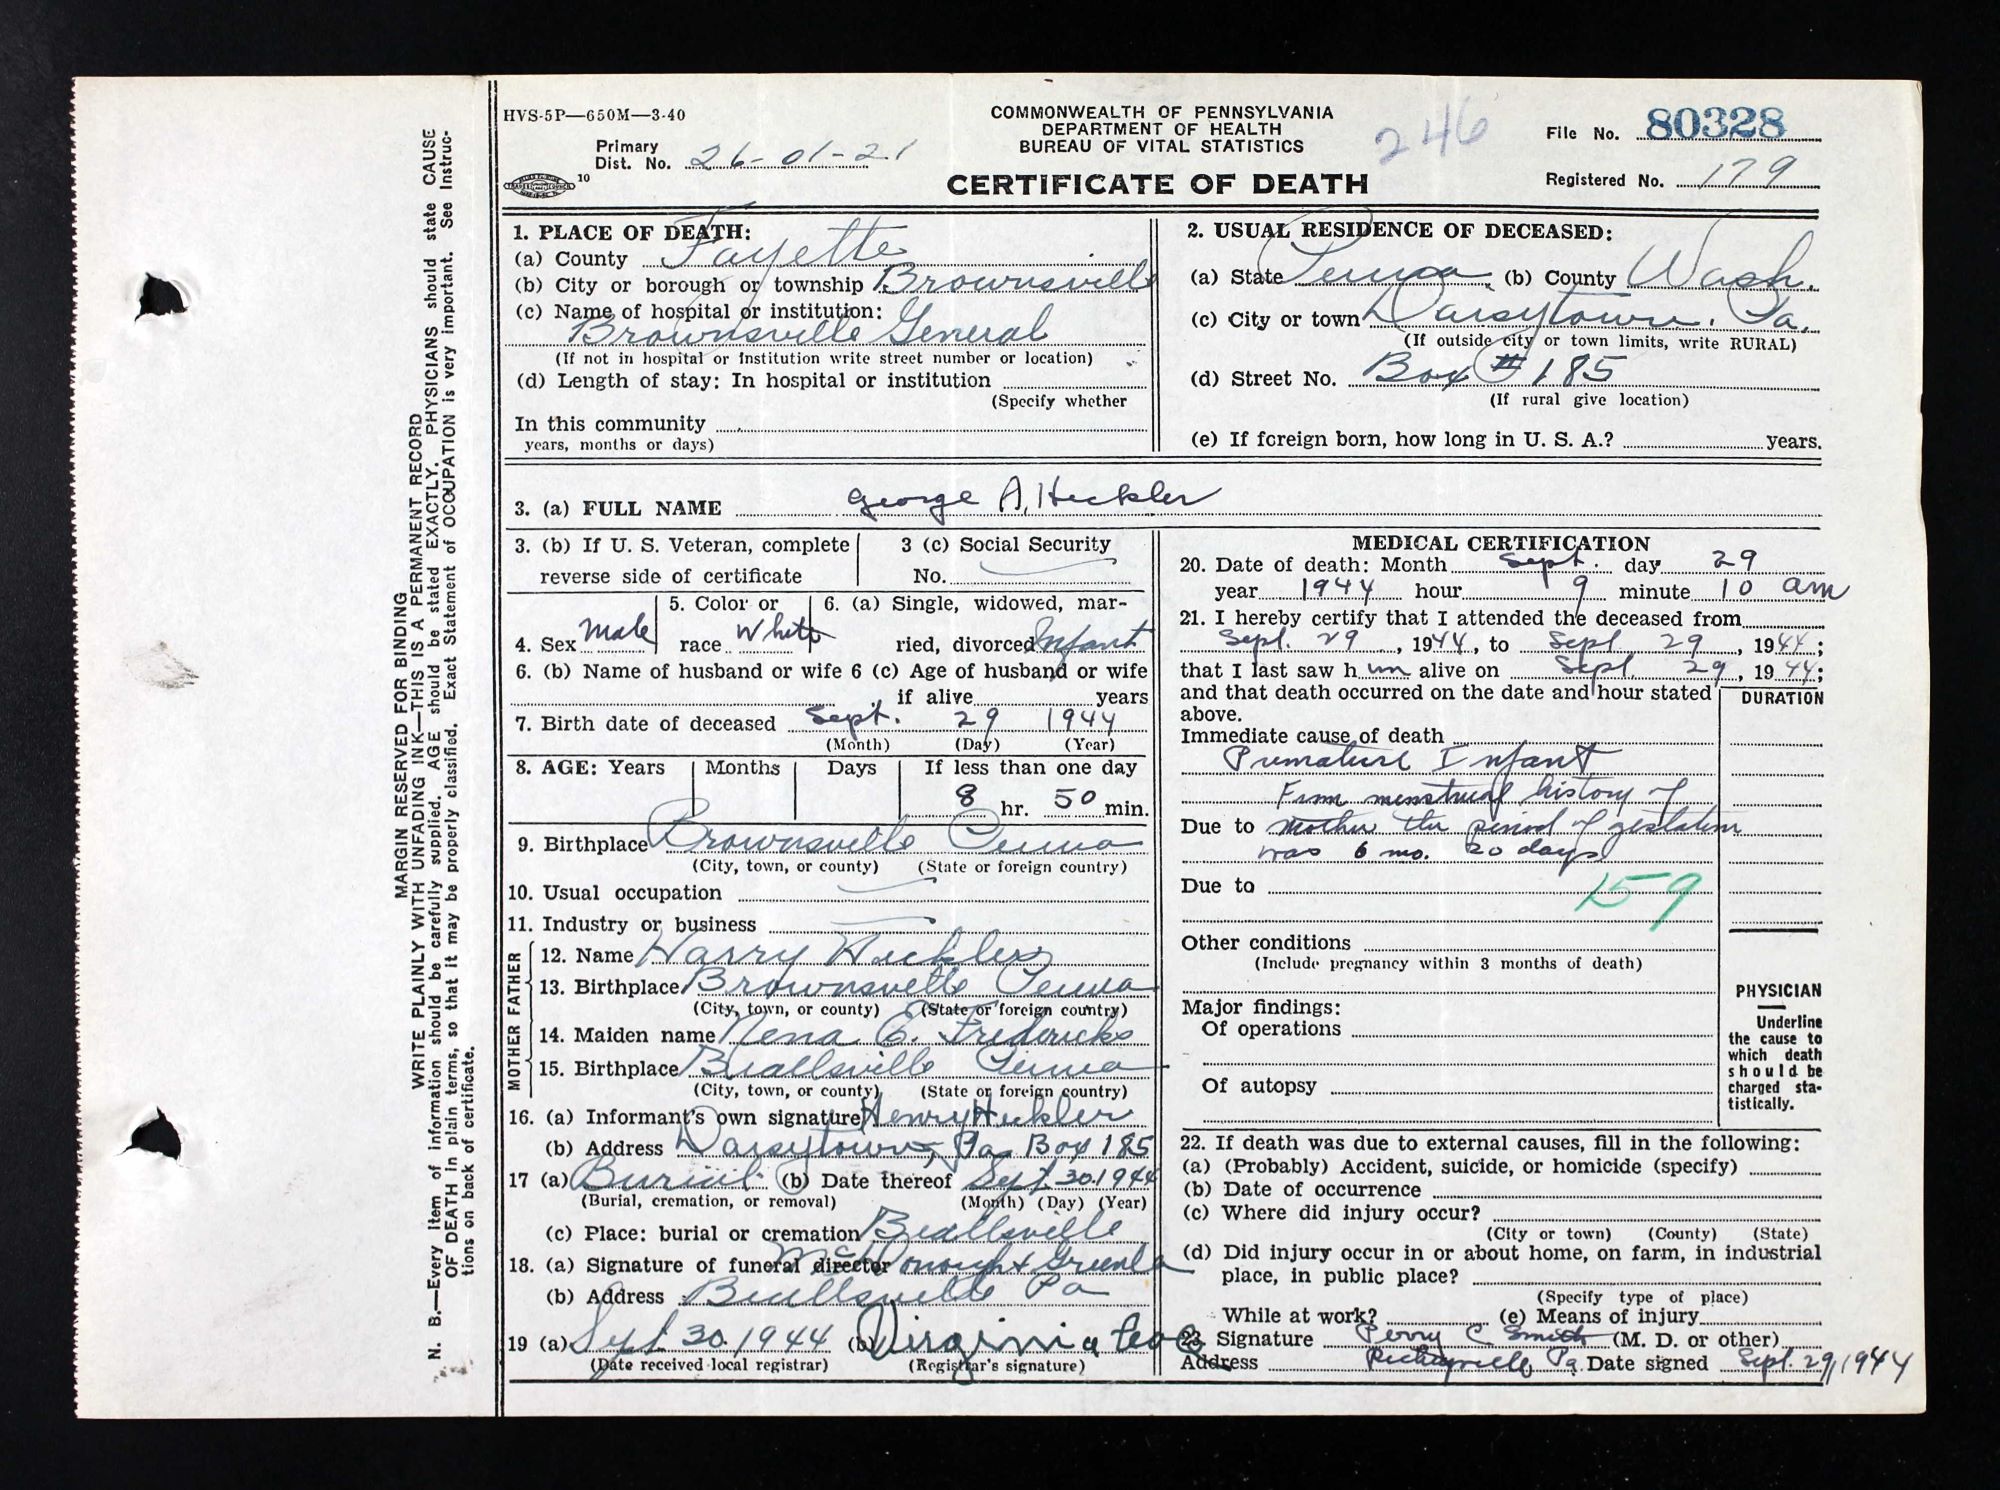 HVS-5P—650M—3-40
COMMONWEALTH OF PENNSYLVANIA
DEPARTMENT OF HEALTH
BUREAU OF VITAL STATISTICS
CERTIFICATE OF DEATH
246
File No. 80328
Registered No. 179
Primary
Dist. No. 26-01-21
10
MARGIN RESERVED FOR BINDING
WRITE PLAINLY WITH UNFADING INK—THIS IS A PERMANENT RECORD
N. B.—Every item of information should be carefully supplied. AGE should be stated EXACTLY. PHYSICIANS should state CAUSE
OF DEATH in plain terms, so that it may be properly classified. Exact Statement of OCCUPATION is very important. See Instruc-
tions on back of certificate.
1. PLACE OF DEATH:
(a) County Fayette
(b) City or borough or township Brownsville
(c) Name of hospital or institution:
Brownsville General
(If not in hospital or institution write street number or location)
(d) Length of stay: In hospital or institution
(Specify whether
In this community
years, months or days)
2. USUAL RESIDENCE OF DECEASED:
(a) State Penna (b) County Wash.
(c) City or town Daisytown, Pa.
(If outside city or town limits, write RURAL)
(d) Street No. Box # 185
(If rural give location)
(e) If foreign born, how long in U. S. A.? years.
3. (a) FULL NAME George A. Heckler
3. (b) If U. S. Veteran, complete
reverse side of certificate
3 (c) Social Security
No.
4. Sex Male
5. Color or
race White
6. (a) Single, widowed, mar-
ried, divorced Infant
6. (b) Name of husband or wife 6 (c) Age of husband or wife
if alive years
7. Birth date of deceased Sept. 29 1944
(Month) (Day) (Year)
8. AGE: Years Months Days If less than one day
8 hr. 50 min.
9. Birthplace Brownsville Penna
(City, town, or county) (State or foreign country)
10. Usual occupation
11. Industry or business
FATHER
12. Name Harry Heckler
13. Birthplace Brownsville Penna
(City, town, or county) (State or foreign country)
MOTHER
14. Maiden name Nena E. Fredericks
15. Birthplace Beallsville Penna
(City, town, or county) (State or foreign country)
16. (a) Informant's own signature Henry Heckler
(b) Address Daisytown, Pa Box 185
17 (a) Burial (b) Date thereof Sept 30, 1944
(Burial, cremation, or removal) (Month) (Day) (Year)
(c) Place: burial or cremation Beallsville
18. (a) Signature of funeral director
(b) Address Beallsville Pa
19 (a) Sept 30, 1944 (b) Virginia
(Date received local registrar) (Registrar's signature)
MEDICAL CERTIFICATION
20. Date of death: Month Sept. day 29
year 1944 hour 9 minute 10 am
21. I hereby certify that I attended the deceased from
Sept. 29, 1944, to Sept 29, 1944;
that I last saw him alive on Sept. 29, 1944;
and that death occurred on the date and hour stated
above.
DURATION
Immediate cause of death
Premature Infant
From menstrual history of
Due to mother the period of gestation
was 6 mo. 20 days
Due to
159
Other conditions
(Include pregnancy within 3 months of death)
Major findings:
Of operations
Of autopsy
PHYSICIAN
Underline
the cause to
which death
should be
charged sta-
tistically.
22. If death was due to external causes, fill in the following:
(a) (Probably) Accident, suicide, or homicide (specify)
(b) Date of occurrence
(c) Where did injury occur?
(City or town) (County) (State)
(d) Did injury occur in or about home, on farm, in industrial
place, in public place?
(Specify type of place)
While at work? (e) Means of injury
23. Signature Perry C Smith (M. D. or other)
Address Richeyville, Pa. Date signed Sept. 29, 1944